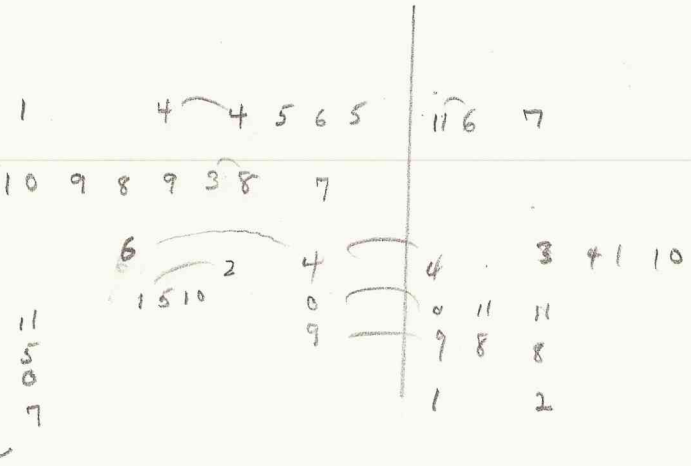 1 4 4 5 6 5 11 6 7
10 9 8 9 3 8 7
6 2 4 4 3 4 1 10
1 5 10 0 0 11 11
11 9 9 8 8
5
0
7 1 2